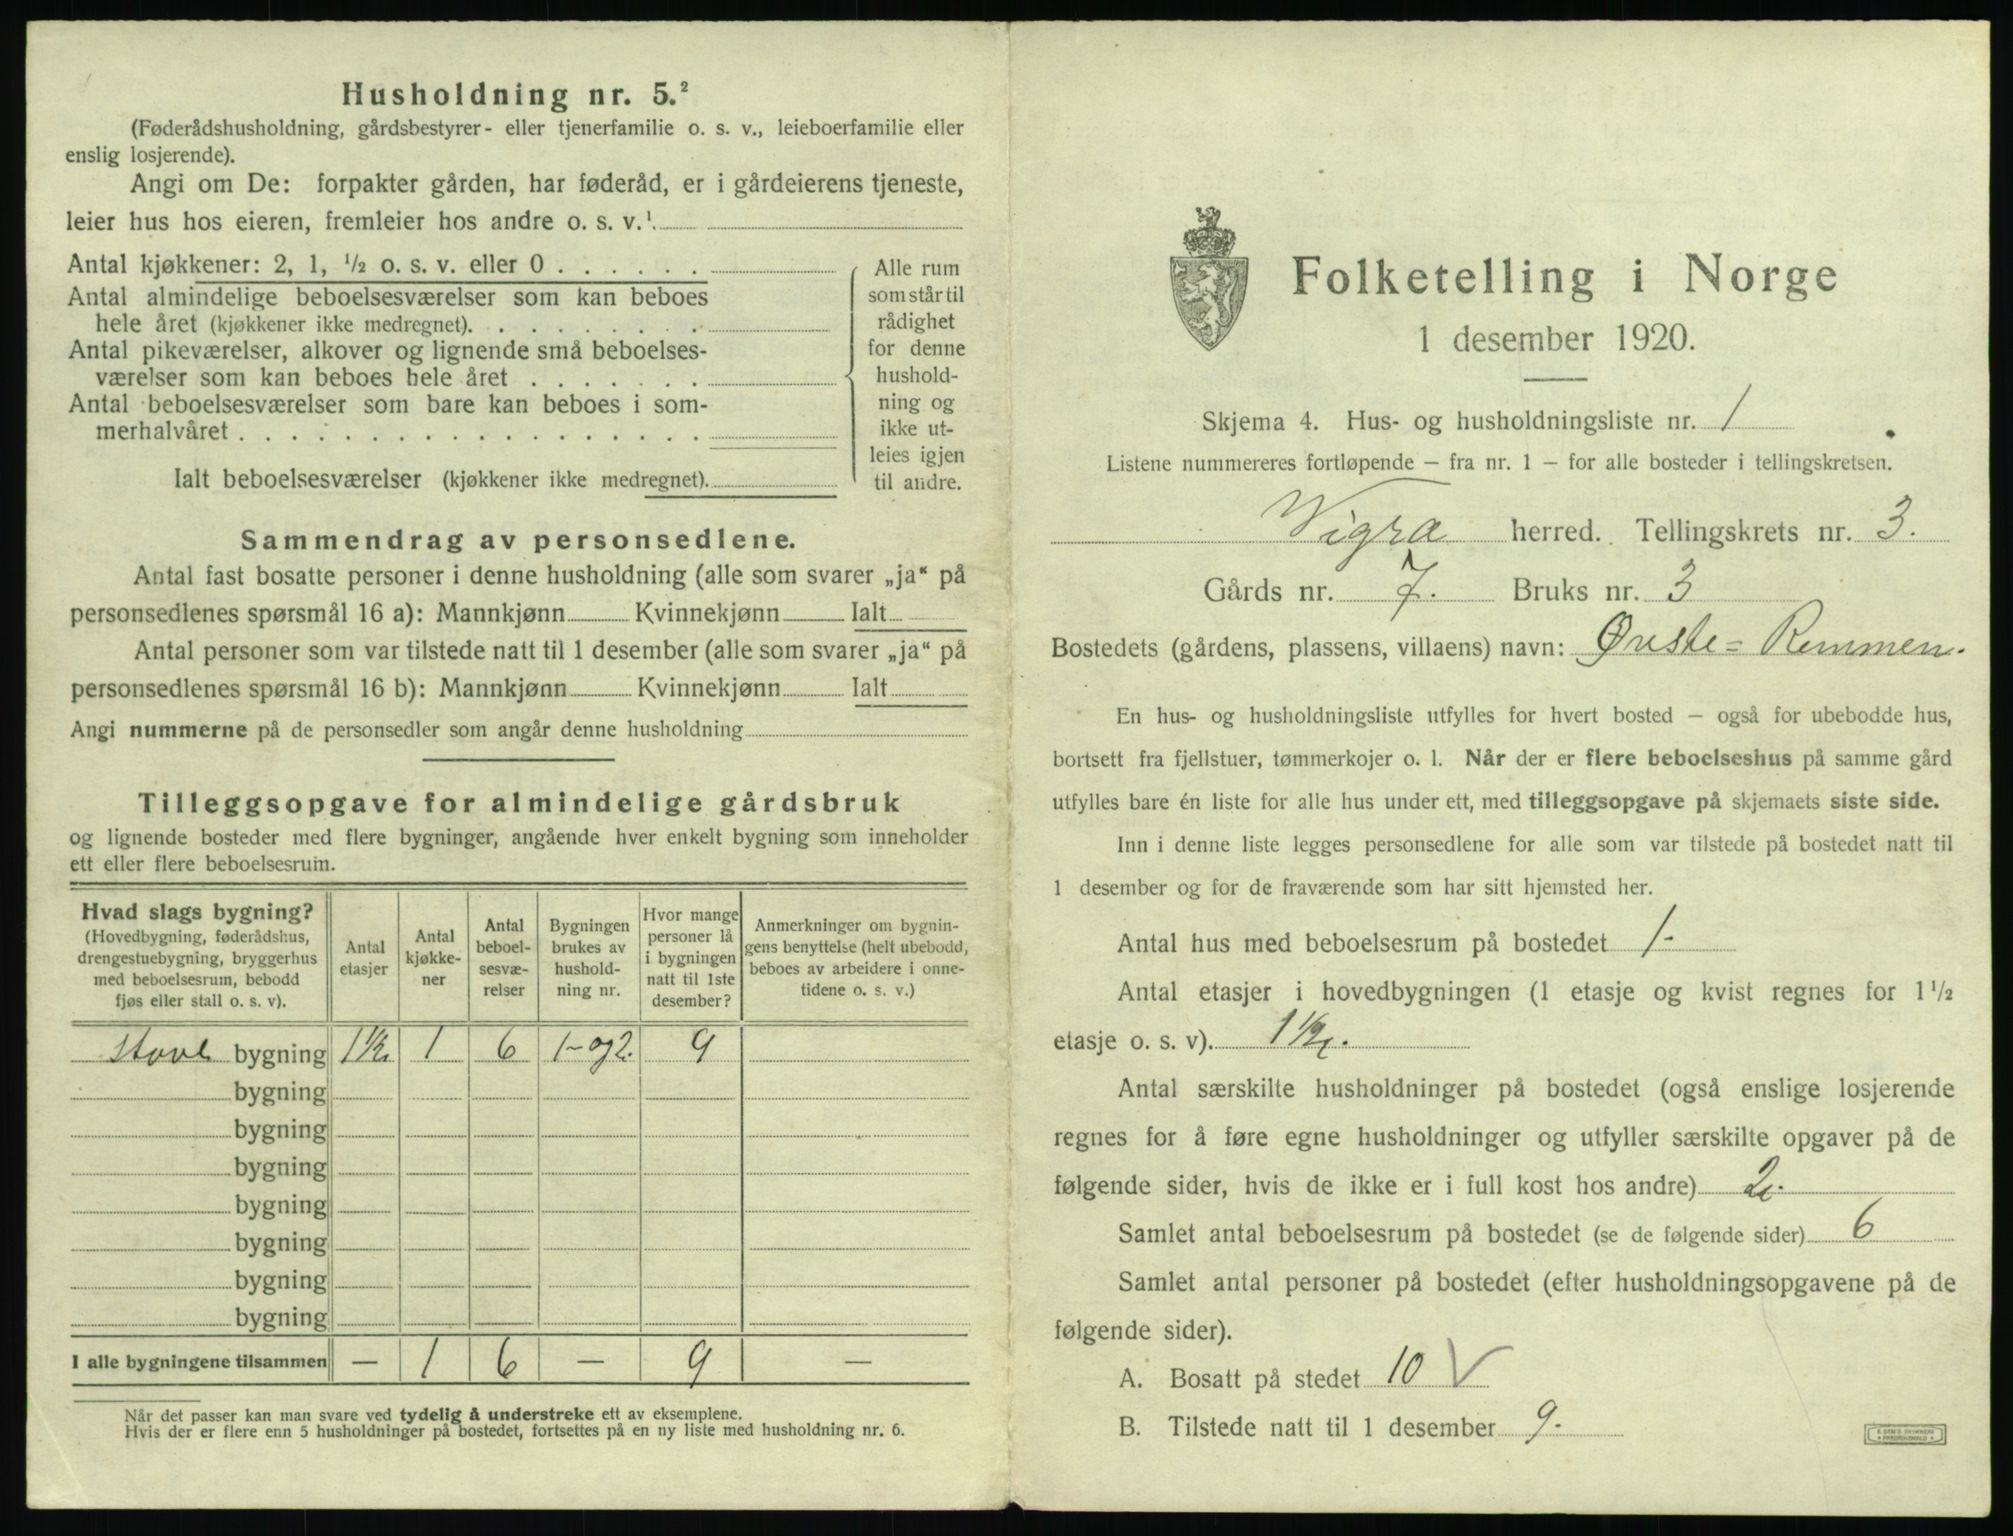 Husholdning nr. 5.²
(Føderådshusholdning, gårdsbestyrer- eller tjenerfamilie o. s. v., leieboerfamilie eller
enslig losjerende).
Angi om De: forpakter gården, har føderåd, er i gårdeierens tjeneste,
leier hus hos eieren, fremleier hos andre o. s. v.¹
Antal kjøkkener: 2, 1, ½ o. s. v. eller 0 . . . . . .
Antal almindelige beboelsesværelser som kan beboes
hele året (kjøkkener ikke medregnet). . . . . . . . .
Antal pikeværelser, alkover og lignende små beboelses-
værelser som kan beboes hele året . . . . . . .
Antal beboelsesværelser som bare kan beboes i som-
merhalvåret . . . . . . . . . . . . . . . . . .
Ialt beboelsesværelser (kjøkkener ikke medregnet).
Alle rum
som står til
rådighet
for denne
hushold-
ning og
ikke ut-
leies igjen
til andre.
Sammendrag av personsedlene.
Antal fast bosatte personer i denne husholdning (alle som svarer „ja“ på
personsedlenes spørsmål 16 a): Mannkjønn Kvinnekjønn Ialt
Antal personer som var tilstede natt til 1 desember (alle som svarer „ja“ på
personsedlenes spørsmål 16 b): Mannkjønn Kvinnekjønn Ialt
Angi nummerne på de personsedler som angår denne husholdning
Tilleggsopgave for almindelige gårdsbruk
og lignende bosteder med flere bygninger, angående hver enkelt bygning som inneholder
ett eller flere beboelsesrum.
Hvad slags bygning?
(Hovedbygning, føderådshus,
drengestuebygning, bryggerhus
med beboelsesrum, bebodd
fjøs eller stall o. s. v).
Antal
etasjer
Antal
kjøkke-
ner
Antal
beboel-
sesvæ-
relser
Bygningen
brukes av
hushold-
ning nr.
Hvor mange
personer lå
i bygningen
natt til 1ste
desember?
Anmerkninger om bygnin-
gens benyttelse (helt ubebodd,
beboes av arbeidere i onne-
tidene o. s. v.)
bygning 1½ 1 6 1- og 2. 9
bygning
bygning
bygning
bygning
bygning
bygning
bygning
I alle bygningene tilsammen — 1 6 — 9 —
Når det passer kan man svare ved tydelig å understreke ett av eksemplene.
Hvis der er flere enn 5 husholdninger på bostedet, fortsettes på en ny liste med husholdning nr. 6.
Folketelling i Norge
1 desember 1920.
Skjema 4. Hus- og husholdningsliste nr. 1
Listene nummereres fortløpende – fra nr. 1 – for alle bosteder i tellingskretsen.
Vigra herred. Tellingskrets nr. 3.
Gårds nr. 7. Bruks nr. 3
Bostedets (gårdens, plassens, villaens) navn: Øvste= Remmen.
En hus- og husholdningsliste utfylles for hvert bosted – også for ubebodde hus,
bortsett fra fjellstuer, tømmerkojer o. l. Når der er flere beboelseshus på samme gård
utfylles bare én liste for alle hus under ett, med tilleggsopgave på skjemaets siste side.
Inn i denne liste legges personsedlene for alle som var tilstede på bostedet natt til
1 desember og for de fraværende som har sitt hjemsted her.
Antal hus med beboelsesrum på bostedet 1-
Antal etasjer i hovedbygningen (1 etasje og kvist regnes for 1½
etasje o. s. v). 1½.
Antal særskilte husholdninger på bostedet (også enslige losjerende
regnes for å føre egne husholdninger og utfyller særskilte opgaver på de
følgende sider, hvis de ikke er i full kost hos andre) 2.
Samlet antal beboelsesrum på bostedet (se de følgende sider) 6
Samlet antal personer på bostedet (efter husholdningsopgavene på de
følgende sider).
A. Bosatt på stedet 10 V
B. Tilstede natt til 1 desember 9.